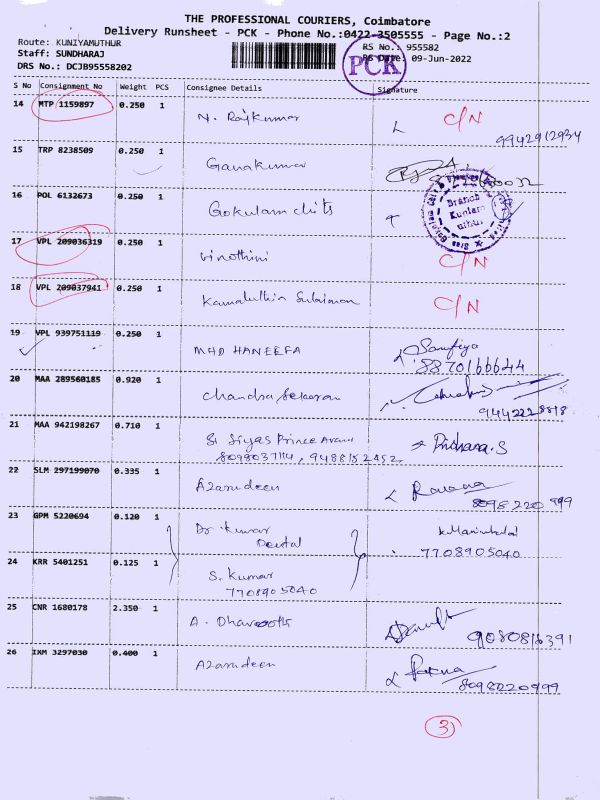 THE PROFESSIONAL COURIERS, Coimbatore
Delivery Runsheet - PCK - Phone No.:0422-3505555 - Page No.:2
Route: KUNIYAMUTHUR
Staff: SUNDHARAJ
DRS No.: DCJB95558202
RS No.: 955582
RS Date: 09-Jun-2022
PCK
S No Consignment No Weight PCS Consignee Details Signature
14 MTP 1159897 0.250 1 N. Rajkumar C/N
9942912934
15 TRP 8238509 0.250 1 Ganakumar
16 POL 6132673 0.250 1 Gokulam chits
Branch
17 VPL 209036319 0.250 1 Vinothini C/N
18 VPL 209037941 0.250 1 C/N
19 VPL 939751119 0.250 1 MHD HANEEFA
8870166644
20 MAA 289560185 0.920 1 Chandra Sekaran
21 MAA 942198267 0.710 1
8098037114, 9488152452
22 SLM 297199070 0.335 1 Azarudeen
8098220999
23 GPM 5220694 0.120 1 Dr. Kumar
Dental
7708905040
24 KRR 5401251 0.125 1 S. Kumar
7708905040
25 CNR 1680178 2.350 1
9080816391
26 IXM 3297030 0.400 1 Azarudeen
8098220999
3